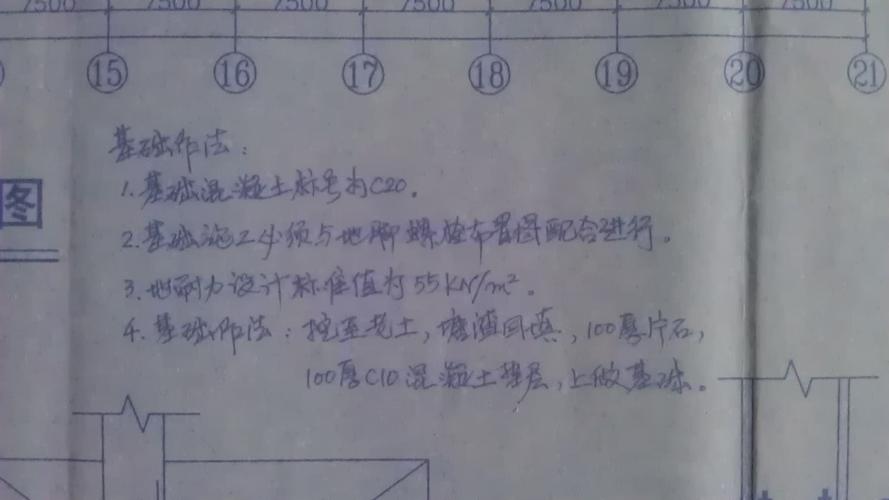 7500 7500 7500 7500 7500 7500 7500
15 16 17 18 19 20 21
基础作法:
1. 基础混凝土标号为C20。
图
2. 基础施工必须与地脚螺栓布置图配合进行。
3. 地耐力设计标准值为55KN/m²。
4. 基础作法:挖至老土,塘渣回填,100厚片石,
100厚C10混凝土垫层,上做基础。